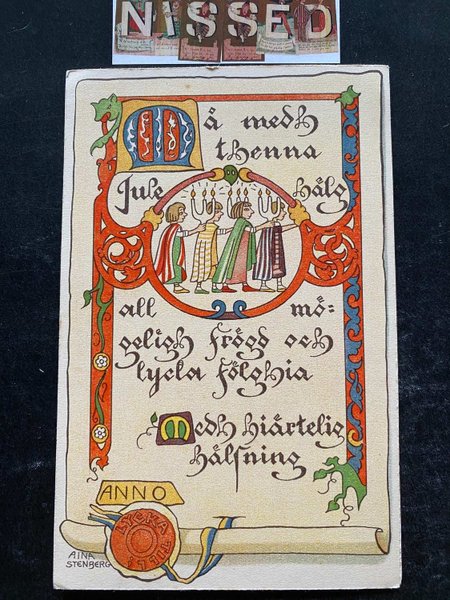 NISSED
Må medh
thenna
Jule hälg
all mö-
geligh frögd och
lycka fölghia
Medh hiärtelig
hälsning
ANNO
LYCKA
AINA
STENBERG